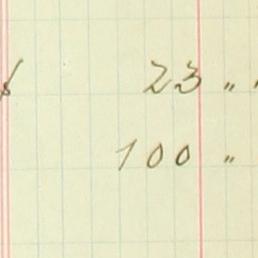 23 " "
100 "